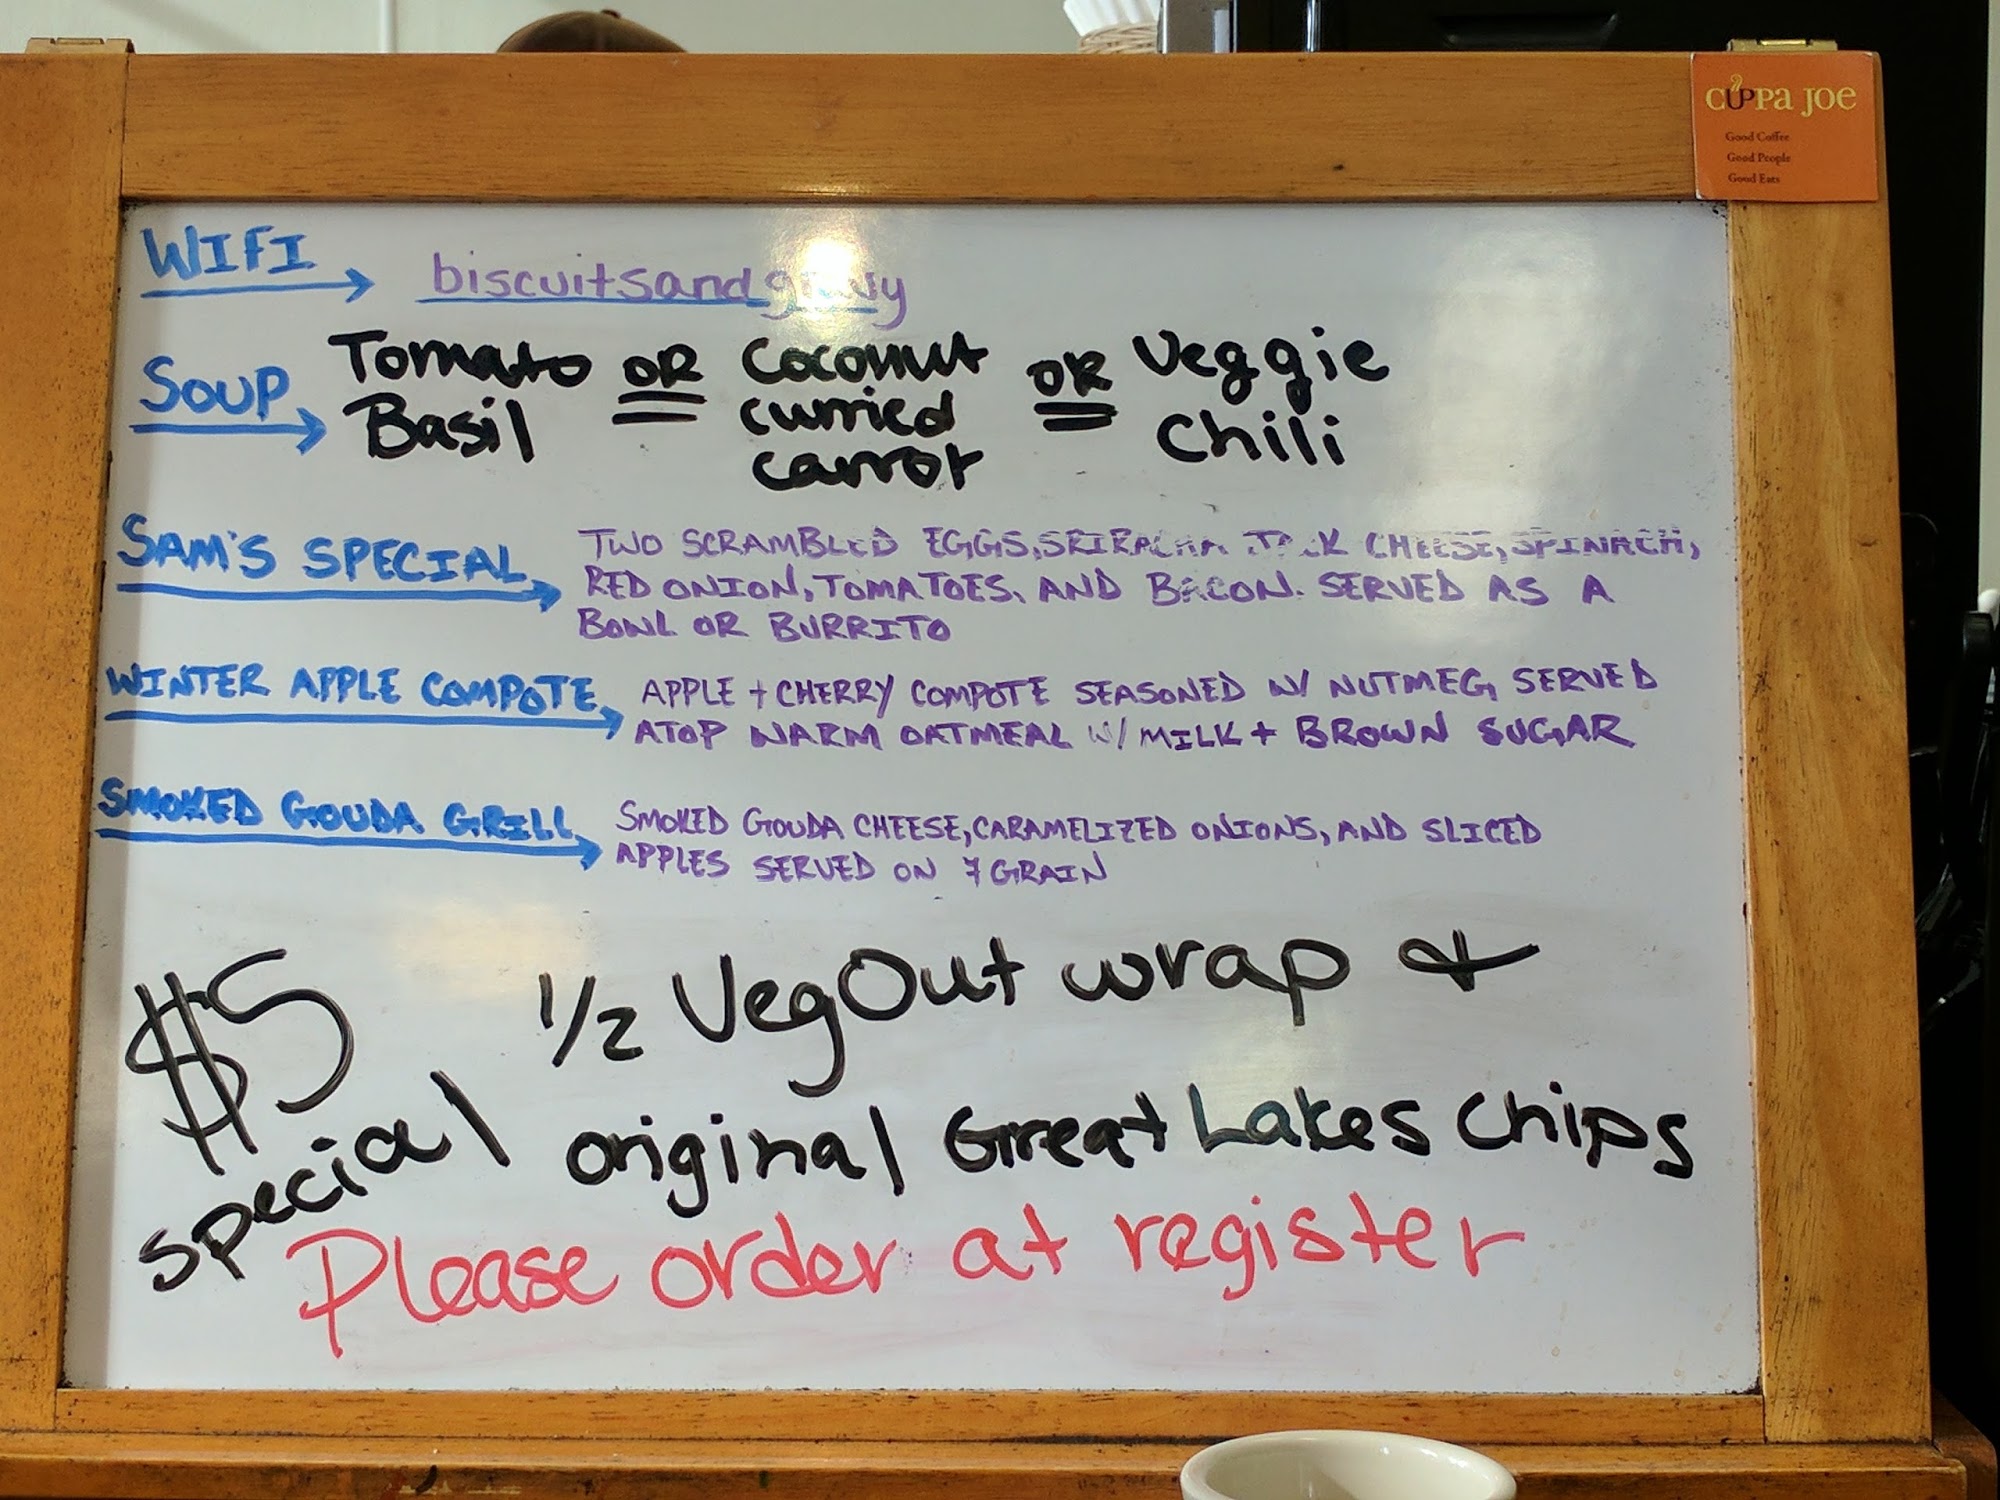 CUPPA JOE
Good Coffee
Good People
Good Eats
WIFI biscuitsandgravy
SOUP Tomato Basil OR Coconut curried carrot OR Veggie Chili
SAM'S SPECIAL TWO SCRAMBLED EGGS, SRIRACHA JACK CHEESE, SPINACH,
RED ONION, TOMATOES, AND BACON. SERVED AS A
BOWL OR BURRITO
WINTER APPLE COMPOTE APPLE + CHERRY COMPOTE SEASONED W/ NUTMEG, SERVED
ATOP WARM OATMEAL W/ MILK + BROWN SUGAR
SMOKED GOUDA GRILL SMOKED GOUDA CHEESE, CARAMELIZED ONIONS, AND SLICED
APPLES SERVED ON 7 GRAIN
$5 special
1/2 VegOut wrap &
original Great Lakes Chips
Please order at register